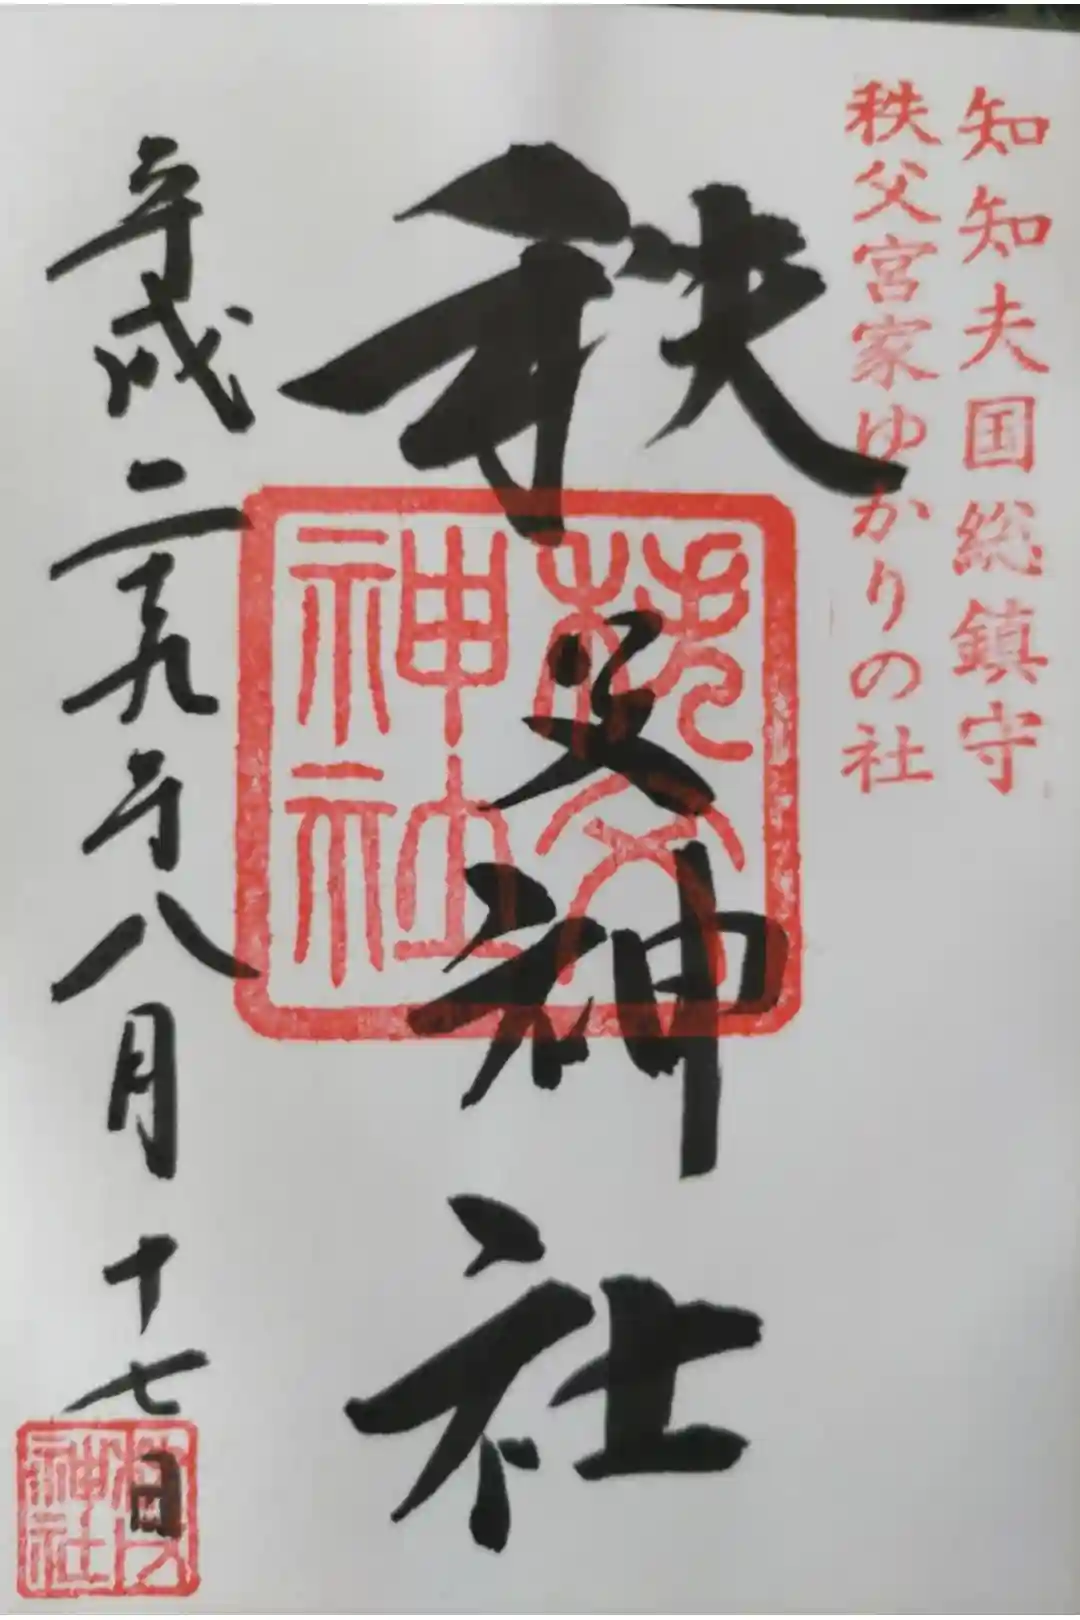 知知夫国総鎮守
秩父宮家ゆかりの社
秩父神社
秩父神社
平成二十九年八月十七日
秩父神社